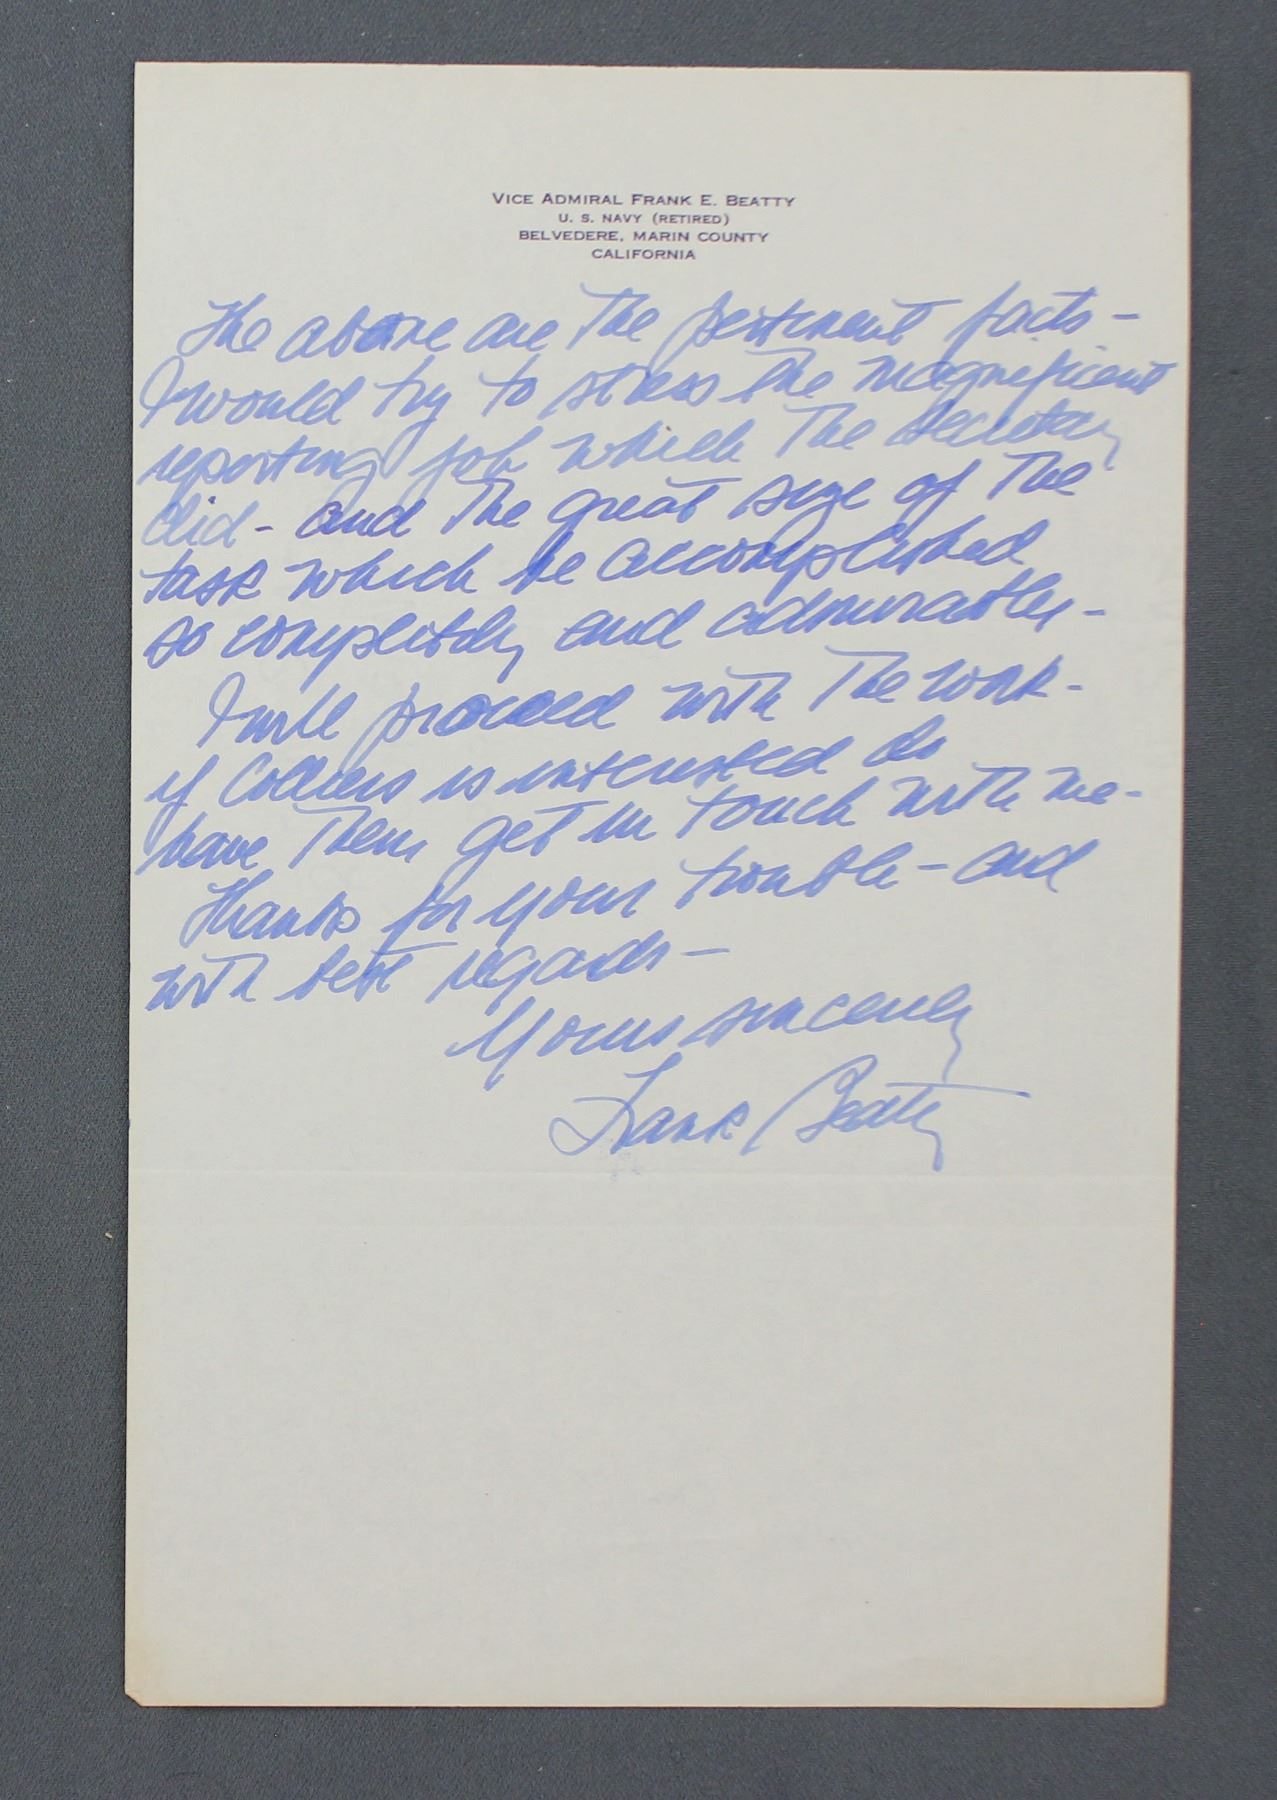 VICE ADMIRAL FRANK E. BEATTY
U. S. NAVY (RETIRED)
BELVEDERE, MARIN COUNTY
CALIFORNIA
The above are the pertinent facts -
I would try to stress the magnificent
reporting job which the Secretary
did - and the great size of the
task which he accomplished
so completely and admirably -
I will proceed with the work -
if Colliers is interested do
have them get in touch with me -
Thanks for your trouble - and
with best regards -
Yours sincerely
Frank Beatty